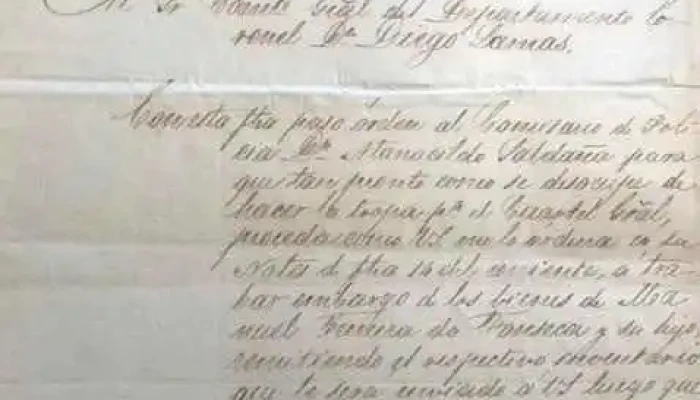 Al Sr Comte Gral del Departamento Co-
ronel Dn Diego Lamas.
Con esta fha paso órden al Comisario de Poli
cia Dn Atanacildo Saldaña para
que tan pronto como se desocupe de
hacer la tropa pa el Cuartel Gral,
proceda como VS me lo ordena en su
Nota d fha 14 del corriente, a tra
bar embargo d los bienes de Ma
nuel Ferreira da Fonseca y su hijo
remitiendo el respectivo inventario
que le sera enviado a VS luego que